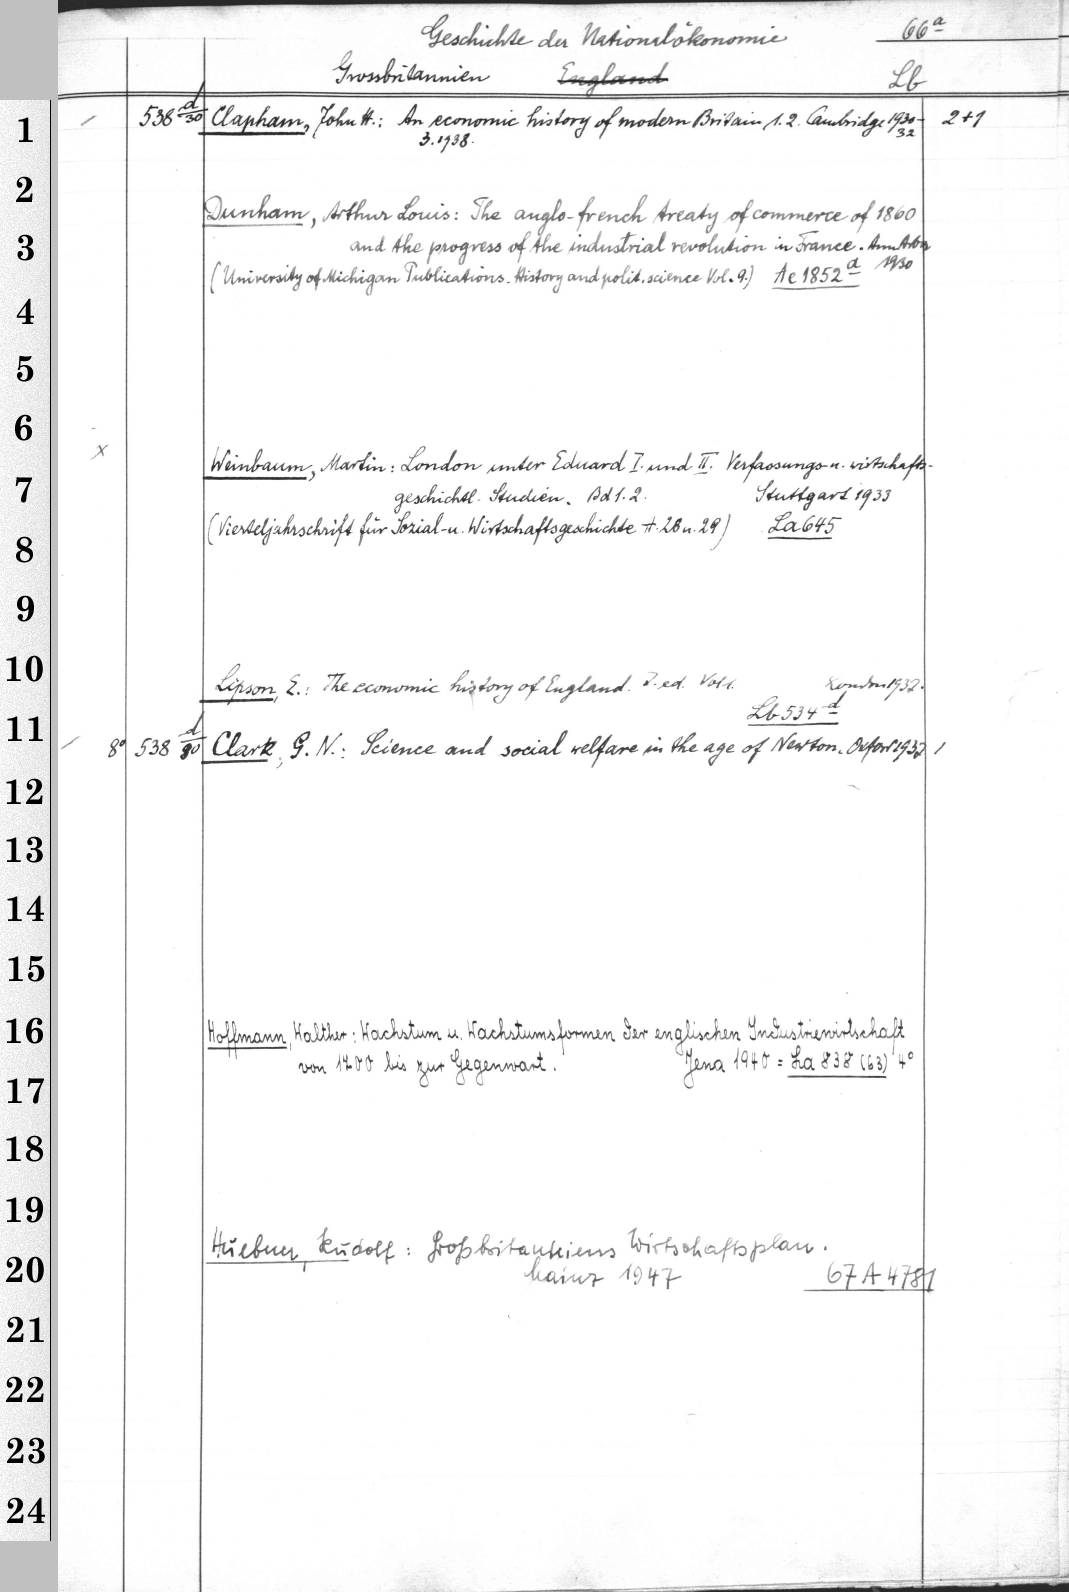 Geschichte der Nationalökonomie 66a
Grossbritannien England Lb
1 538 d/30 Clapham, John H.: An economic history of modern Britain 1. 2. Cambridge 1930-32 2+1
3. 1938.
2
Dunham, Arthur Louis: The anglo-french treaty of commerce of 1860
3 and the progress of the industrial revolution in France. Ann Arbor 1930
(University of Michigan Publications. History and polit. science Vol. 9.) Ae 1852 d
4
5
6
x
Weinbaum, Martin: London unter Eduard I. und II. Verfassungs- u. wirtschafts-
7 geschichtl. Studien. Bd 1. 2. Stuttgart 1933
(Vierteljahrschrift für Sozial- u. Wirtschaftsgeschichte H. 28 u. 29) La 645
8
9
10
Lipson, E.: The economic history of England. 7. ed. Vol 1. London 1937.
Lb 534 d
11 8° 538 d/80 Clark, G. N.: Science and social welfare in the age of Newton. Oxford 1937 1
12
13
14
15
16 Hoffmann, Walther: Wachstum u. Wachstumsformen der englischen Industriewirtschaft
von 1700 bis zur Gegenwart. Jena 1940 = La 838 (63) 4°
17
18
19
Huebner, Rudolf: Großbritanniens Wirtschaftsplan.
20 Mainz 1947 67 A 4781
21
22
23
24